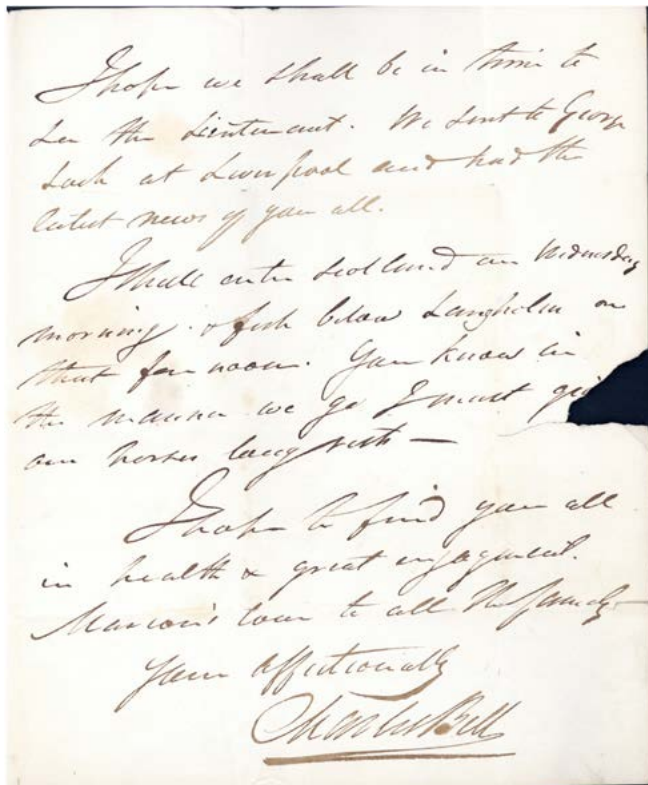 I hope we shall be in time to
see the Lieutenant. We sent to George
at Liverpool and had the
latest news of you all.
I shall enter Scotland on Wednesday
morning & fish below Langholm on
that forenoon. You know in
the manner we go I must
our horses long rests —
I hope to find you all
in health & great enjoyment.
Marion's love to all the family
Yours affectionately
Charles Bell